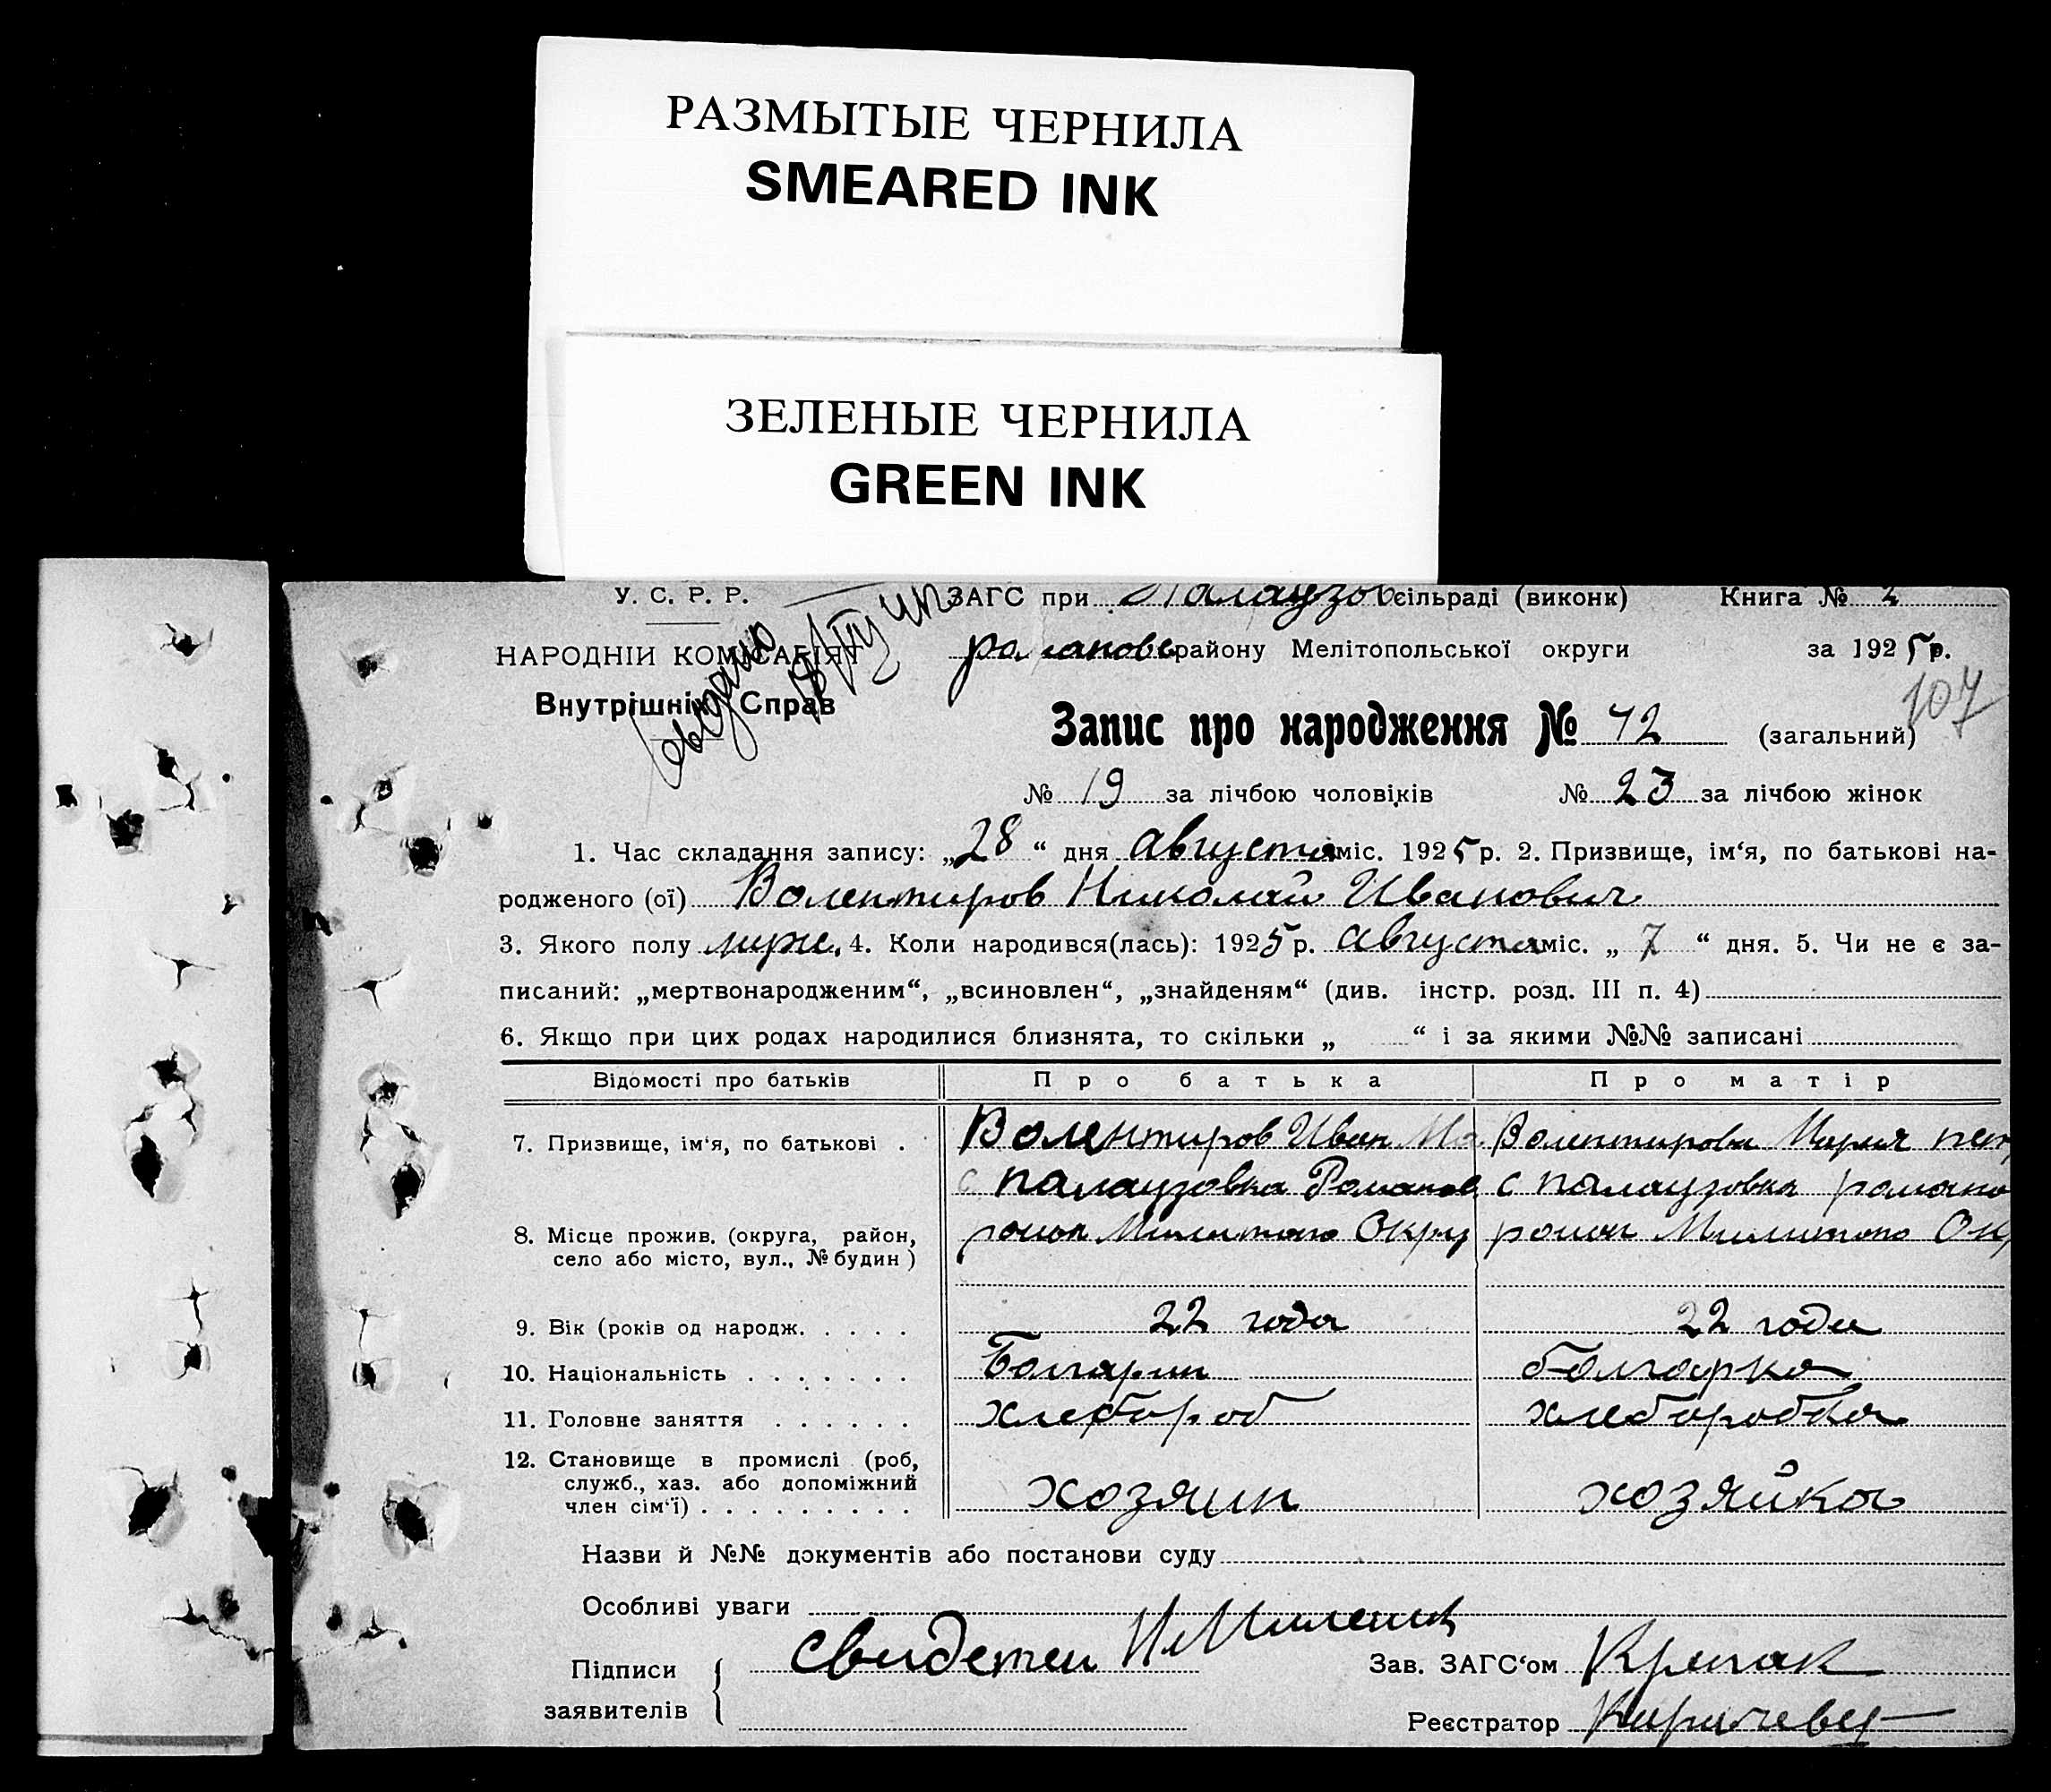 РАЗМЫТЫЕ ЧЕРНИЛА
SMEARED INK
ЗЕЛЕНЫЕ ЧЕРНИЛА
GREEN INK
У. С. Р. Р. ЗАГС при Палаузов сільраді (виконк) Книга № 2
НАРОДНІЙ КОМІСАРІЯТ романовс району Мелітопольської округи за 1925 р.
Внутрішніх Справ
107
Запис про народження № 42 (загальний)
№ 19 за лічбою чоловіків № 23 за лічбою жінок
1. Час складання запису: „28“ дня августа міс. 1925 р. 2. Призвище, ім‘я, по батькові на-
родженого (ої) Волентиров Николай Иванович
3. Якого полу муж. 4. Коли народився(лась): 1925 р. августа міс. „7“ дня. 5. Чи не є за-
писаний: „мертвонародженим“, „всиновлен“, „знайденям“ (див. інстр. розд. III п. 4)
6. Якщо при цих родах народилися близнята, то скільки „ “ і за якими №№ записані
Відомості про батьків Про батька Про матір
7. Призвище, ім‘я, по батькові . Волентиров Иван Волентирова Мария пет
с палаузовка Романов с палаузовка романо
8. Місце прожив. (округа, район, район Милитопо Окру район Милитопо Ок
село або місто, вул., № будин )
9. Вік (років од народж. . . . . 22 года 22 года
10. Національність . . . . . . . Болгарин болгарка
11. Головне заняття . . . . . . хлебороб хлеборобка
12. Становище в промислі (роб,
служб., хаз. або допоміжний хозяин хозяйка
член сім‘ї) . . . . . . . . .
Назви й №№ документів або постанови суду
Особливі уваги
Підписи свидетели Зав. ЗАГС‘ом
заявителів Реєстратор